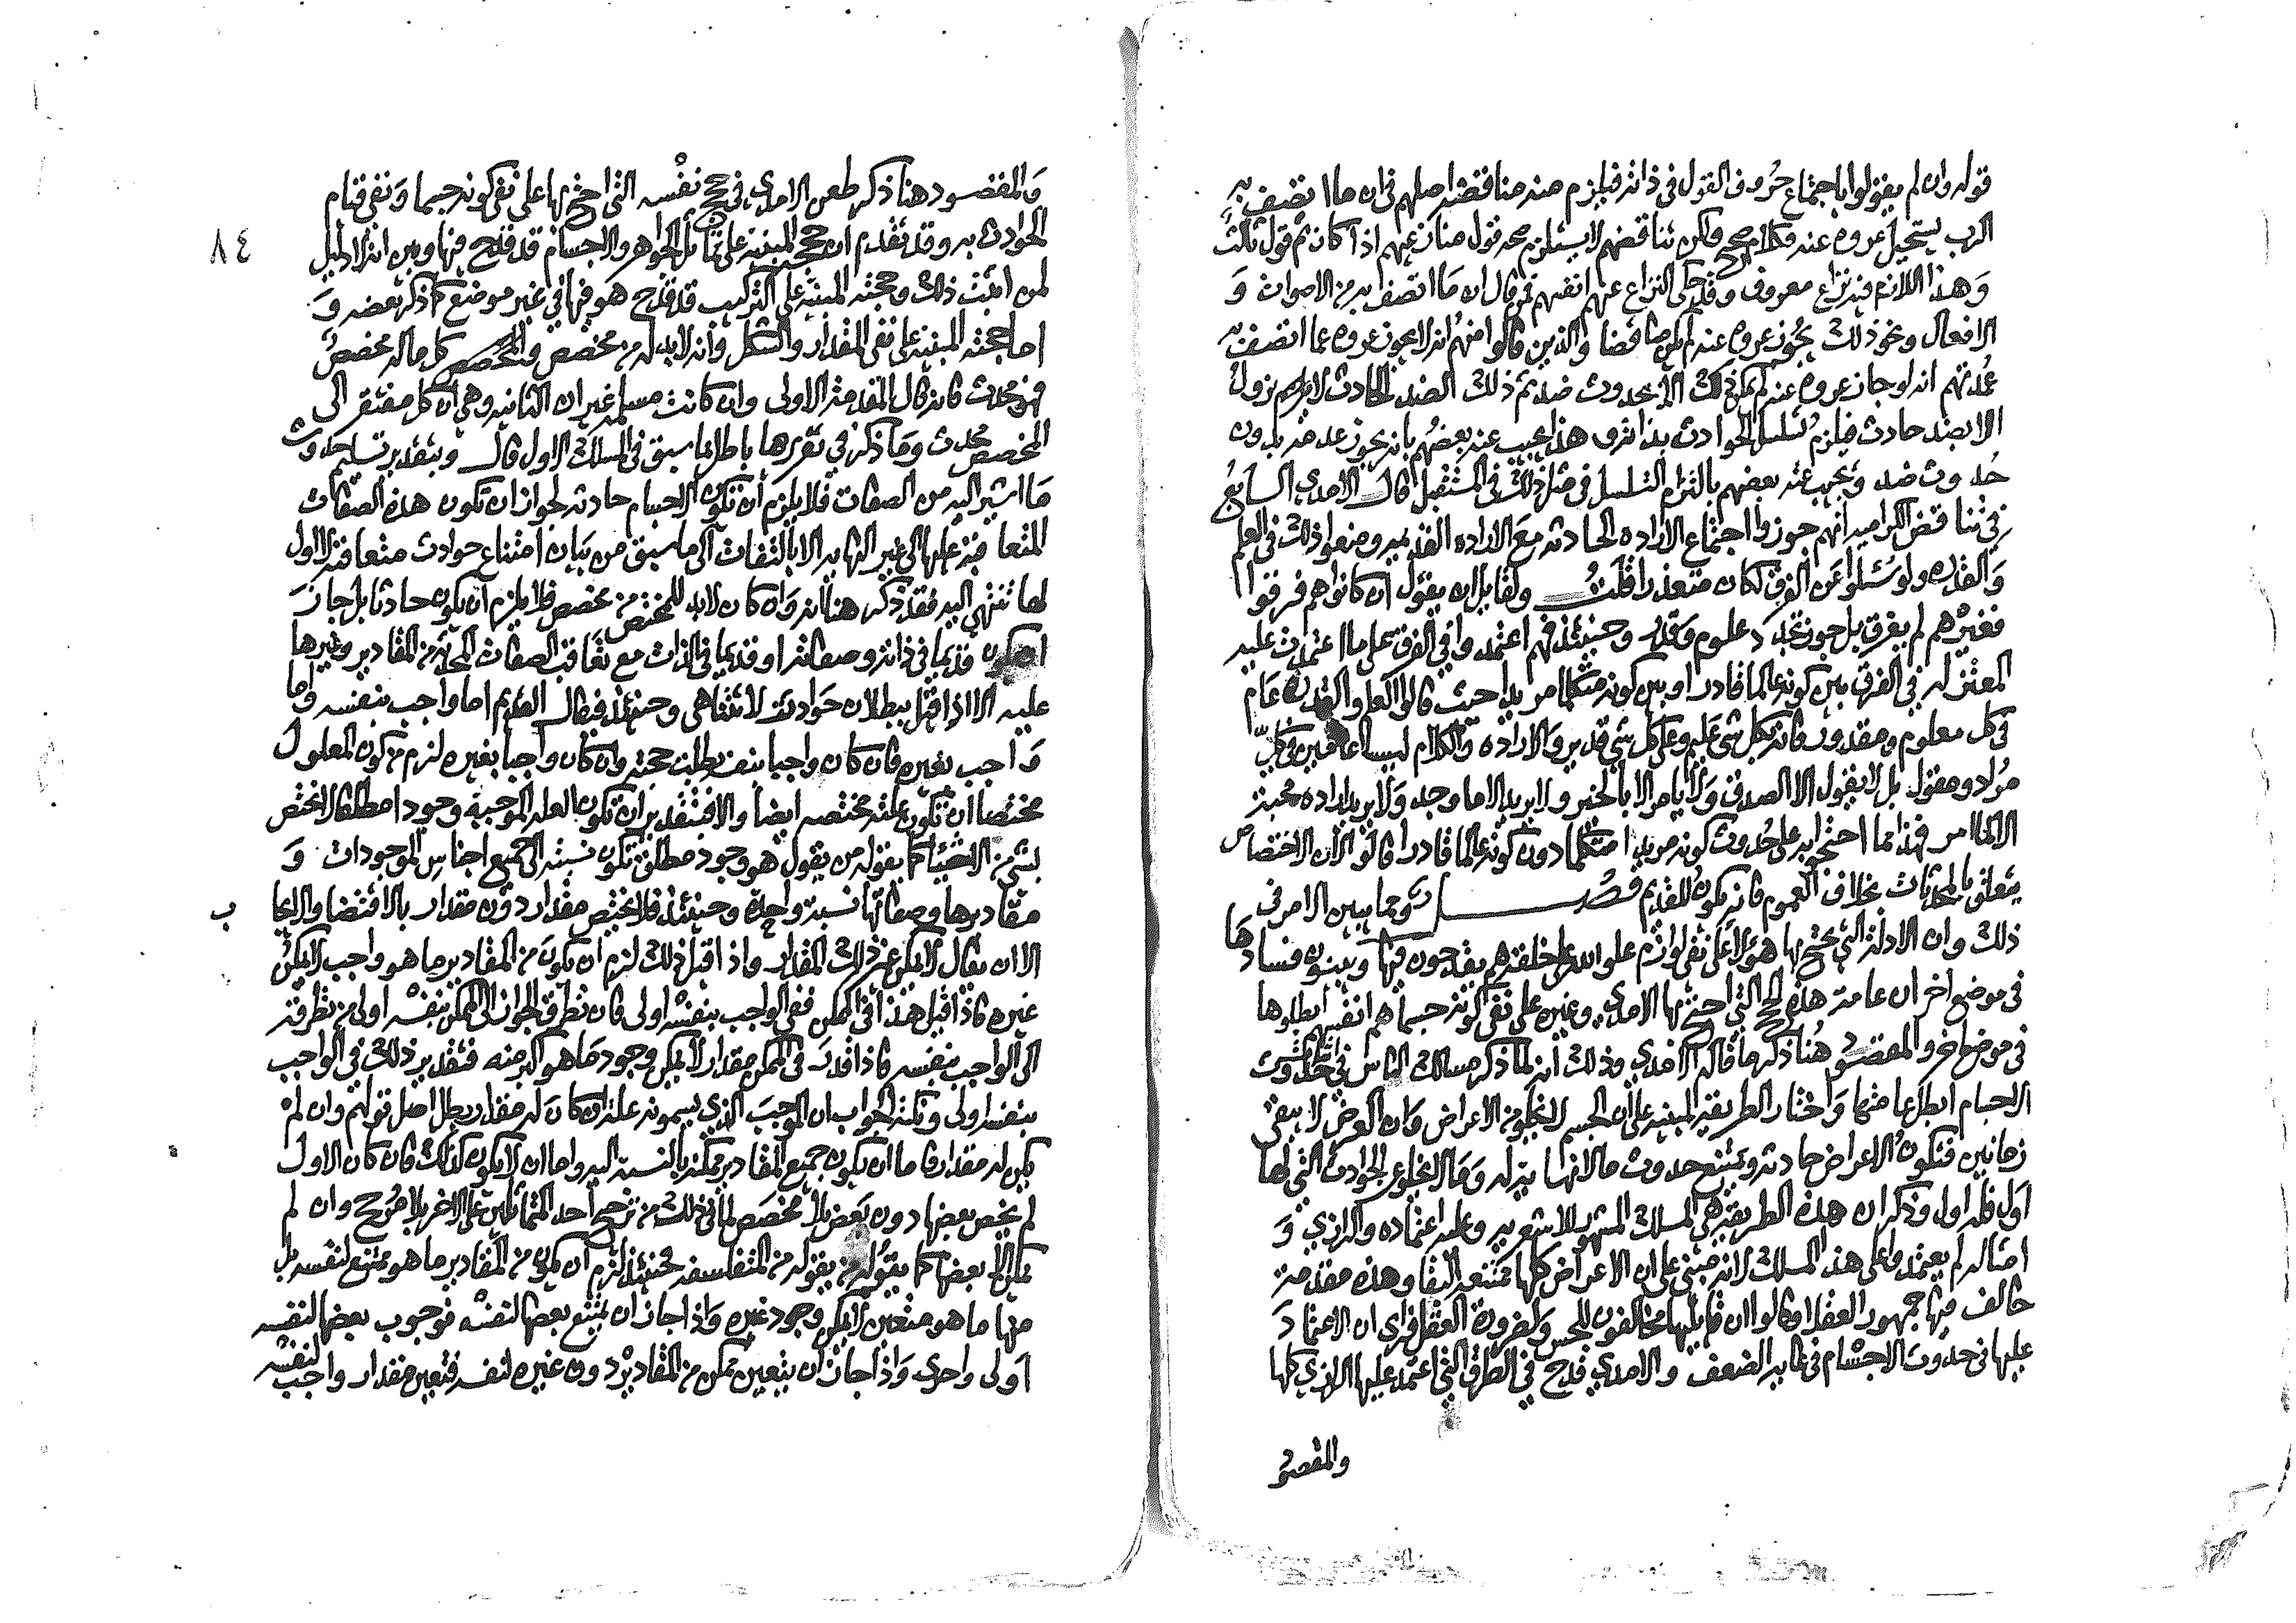 قوله وان لم يقولوا باجتماع حروف القول في ذاته فيلزم منه مناقضة اصلهم في ان ما اتصف به
الرب يستحيل عروه عنه فكلام صحيح ولكن تناقضهم لا يستلزم صحه قول منازعيهم اذا كان ثم قول ثالث
وهذا اللازم فيه نزاع معروف وقد حكى النزاع عنهم انفسهم فمن قال ان ما اتصف به من الاصوات و
الافعال ونحو ذلك يجوز عروه عنه لم يكن مناقضا والذين قالوا منهم انه لا يجوز عروه عما اتصف به
عمدتهم انه لو جاز عروه عنه لم يمكن ذلك الا بحدوث ضد ثم ذلك الضد الحادث لا يزول
الا بضد حادث فيلزم تسلسل الحوادث بذاته وهذا يجيب عنه بعضهم بانه يجوز عدمه بدون
حدوث ضد ويجيب عنه بعضهم بالتزام التسلسل في مثل ذلك في المستقبل قال الامدي السابع
في تناقض الكراميه انهم جوزوا اجتماع الاراده الحادثه مع الاراده القديمه ومنعوا ذلك في العلم
والقدره ولو سئلوا عن الفرق لكان متعذرا قلت ولقايل ان يقول ان كانوا هم فرقوا
فغيرهم لم يفرق بل جوز تجدد علوم وقدر وحينئذ فهم اعتمدوا في الفرق على ما اعتمدت عليه
المعتزله في الفرق بين كونه عالما قادرا وبين كونه متكلما مريدا حيث قالوا العلم والقدره عام
في كل معلوم ومقدور فانه بكل شئ عليم وعلى كل شئ قدير والاراده والكلام ليسا عامين في كل
مراد ومقول بل لا يقول الا الصدق ولا يامر الا بالخير ولا يريد الا ما وجد ولا يريد اراده محبة
الا لما امر فهذا مما احتجوا به على حدوث كونه مريدا متكلما دون كونه عالما قادرا قالوا لان الاختصاص
يتعلق بالمحدثات بخلاف العموم فانه يكون للقديم فصل ومما يبين الامر في
ذلك وان الادلة التي يحتج بها هؤلاء على نفي لوازم علو الله على خلقه هم يقدحون فيها ويبينون فسادها
في موضع اخر ان عامة هذه الحجج التي احتج بها الامدي وغيره على نفي كونه جسما هم انفسهم ابطلوها
في موضع اخر والمقصود هنا ذكر ما قاله الامدي وذلك انه لما ذكر مسالك الناس في حدوث
الاجسام ابطل عامتها واختار الطريقة المبنيه على ان الجسم لا يخلو من الاعراض وان العرض لا يبقى
زمانين فتكون الاعراض حادثه ويمتنع حدوث ما لا نهاية له وما لا يخلو عن الحوادث التي لها
اول فله اول وذكر ان هذه الطريقة هي المسلك المشهور للاشعريه وعليه اعتماده والرازي و
امثاله لم يعتمدوا على هذا المسلك لانه مبني على ان الاعراض كلها ممتنعة البقا وهذه مقدمة
خالف فيها جمهور العقلا وقالوا ان قايليها مخالفون للحس ولضرورة العقل فراى ان الاعتماد
عليها في حدوث الاجسام في غاية الضعف والامدي قدح في الطرق التي اعتمد عليها الرازي كلها
والمقصود
٨٤
والمقصود هنا ذكر طعن الامدي في حجج نفسه التي احتج بها على نفي كونه جسما ونفي قيام
الحوادث به وقد تقدم ان حججه المبنية على تماثل الجواهر والاجسام قد قدح فيها وبين انه لا دليل
لمن اثبت ذلك وحجته المبنيه على التركيب قد قدح هو فيها في غير موضع كما ذكر بعضه و
اما حجته المبنيه على نفي المقدار والشكل وانه لا بد له من مخصص وكل ما له مخصص
فهو محدث فانه قال المقدمة الاولى وان كانت مسلمه غير ان الثانيه وهي ان كل مفتقر الى
المخصص محدث وما ذكر في تقريرها باطل بما سبق في المسلك الاول قال وبتقدير تسليم حدوث
ما اشير اليه من الصفات فلا يلزم ان تكون الاجسام حادثه لجواز ان تكون هذه الصفات
المتعاقبة عليها الى غير النهايه الا بالتفات الى ما سبق من بيان امتناع حوادث متعاقبة لا اول
لها تنتهي اليه فقد ذكر هنا انه وان كان لا بد للمختص من مخصص فلا يلزم ان يكون حادثا بل جاز
ان يكون قديما في ذاته وصفاته او قديما في الذات مع تعاقب الصفات المحدثة من المقادير وغيرها
عليه الا اذا قيل ببطلان حوادث لا تتناهى وحينئذ فيقال القديم اما واجب بنفسه واما
واجب بغيره فان كان واجبا بنفسه بطلت حجته وان كان واجبا بغيره لزم من كون المعلول
مختصا ان تكون علته مختصه ايضا والا فبتقدير ان تكون العلة الموجبة وجودا مطلقا لا يختص
بشئ من الاشياء كما يقوله من يقول هو وجود مطلق تكون نسبته الى جميع اجناس الموجودات و
مقاديرها وصفاتها نسبة واحدة وحينئذ فلا يختص مقدار دون مقدار بالاقتضا والايجاب
الا ان يقال لا يمكن غير ذلك المقدار واذا قيل ذلك لزم ان يكون من المقادير ما هو واجب لا يمكن
غيره فاذا قيل هذا في الممكن ففي الواجب بنفسه اولى فان تطرق الجواز الى الممكن بنفسه اولى من تطرقه
الى الواجب بنفسه فاذا قدر في الممكن مقدار لا يمكن وجود ما هو اكبر منه فتقدير ذلك في الواجب
بنفسه اولى ونكتة الجواب ان الموجب الذي يسمونه علة ان كان له مقدار بطل اصل قولهم وان لم
يكن له مقدار فاما ان يكون جميع المقادير ممكنه بالنسبة اليه واما ان لا يكون كذلك فان كان الاول
لم يخص بعضها دون بعض بلا مخصص لما في ذلك من ترجيح احد المتماثلين على الاخر بلا مرجح وان لم
يمكن الا بعضها كما يقوله من يقوله من المتفلسفه فحينئذ لزم ان يكون من المقادير ما هو ممتنع لنفسه بل
منها ما هو متعين لا يمكن وجود غيره واذا جاز ان يمتنع بعضها لنفسه فوجوب بعضها لنفسه
اولى واحرى واذا جاز ان يتعين ممكن من المقادير دون غيره لنفسه فتعين مقدار واجب لنفسه